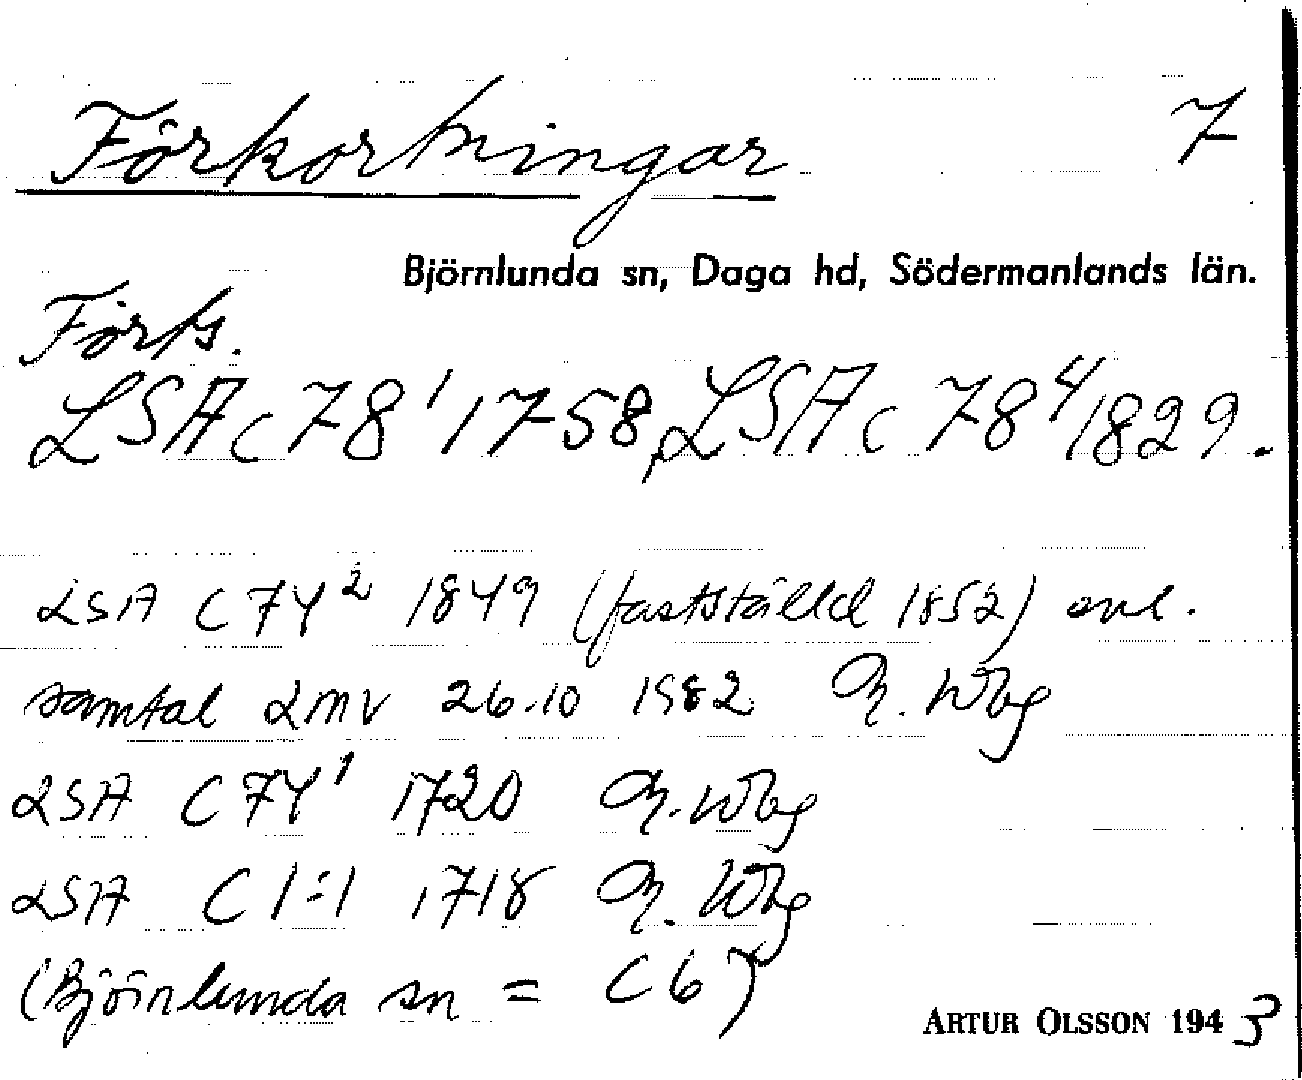 Förkortningar 7
Björnlunda sn, Daga hd, Södermanlands län.
Forts.
LSA c 78¹ 1758, LSA c 78⁴ 1829.
LSA C 74² 1849 (fastställd 1852) enl.
samtal LMV 26.10 1982 M. Wbg
LSA C 74¹ 1720 M. Wbg
LSA C 1:1 1718 M. Wbg
(Björnlunda sn = C 6)
ARTUR OLSSON 1943